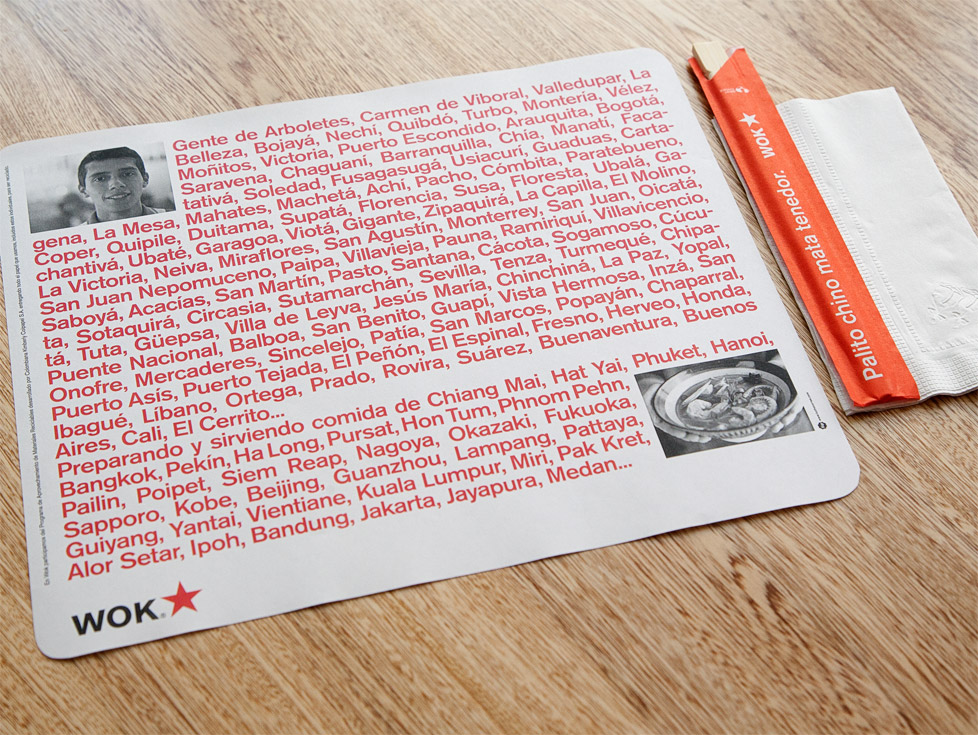 Gente de Arboletes, Carmen de Viboral, Valledupar, La
Belleza, Bojayá, Nechí, Quibdó, Turbo, Montería, Vélez,
Moñitos, Victoria, Puerto Escondido, Arauquita, Bogotá,
Saravena, Chaguaní, Barranquilla, Chía, Manatí, Faca-
tativá, Soledad, Fusagasugá, Usiacurí, Guaduas, Carta-
gena, La Mesa, Mahates, Machetá, Achí, Pacho, Cómbita, Paratebueno,
Coper, Quipile, Duitama, Supatá, Florencia, Susa, Floresta, Ubalá, Ga-
chantivá, Ubaté, Garagoa, Viotá, Gigante, Zipaquirá, La Capilla, El Molino,
La Victoria, Neiva, Miraflores, San Agustín, Monterrey, San Juan, Oicatá,
San Juan Nepomuceno, Paipa, Villavieja, Pauna, Ramiriquí, Villavicencio,
Saboyá, Acacías, San Martín, Pasto, Santana, Cácota, Sogamoso, Cúcu-
ta, Sotaquirá, Circasia, Sutamarchán, Sevilla, Tenza, Turmequé, Chipa-
tá, Tuta, Güepsa, Villa de Leyva, Jesús María, Chinchiná, La Paz, Yopal,
Puente Nacional, Balboa, San Benito, Guapí, Vista Hermosa, Inzá, San
Onofre, Mercaderes, Sincelejo, Patía, San Marcos, Popayán, Chaparral,
Puerto Asís, Puerto Tejada, El Peñón, El Espinal, Fresno, Herveo, Honda,
Ibagué, Líbano, Ortega, Prado, Rovira, Suárez, Buenaventura, Buenos
Aires, Cali, El Cerrito...
Preparando y sirviendo comida de Chiang Mai, Hat Yai, Phuket, Hanoi,
Bangkok, Pekín, Ha Long, Pursat, Hon Tum, Phnom Pehn,
Pailin, Poipet, Siem Reap, Nagoya, Okazaki, Fukuoka,
Sapporo, Kobe, Beijing, Guanzhou, Lampang, Pattaya,
Guiyang, Yantai, Vientiane, Kuala Lumpur, Miri, Pak Kret,
Alor Setar, Ipoh, Bandung, Jakarta, Jayapura, Medan...
WOK®
Palito chino mata tenedor. WOK